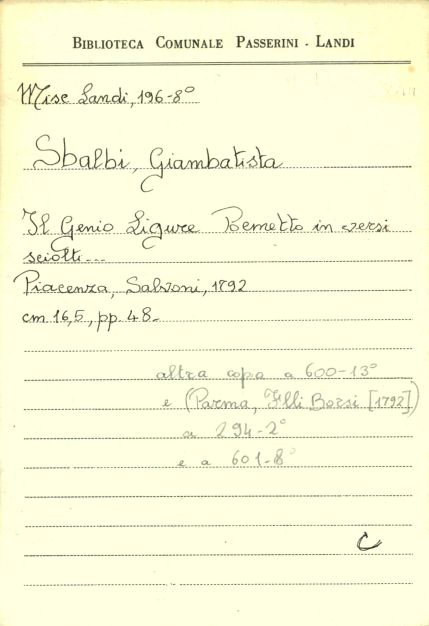 BIBLIOTECA COMUNALE PASSERINI - LANDI
Misc Landi, 196-8°
Sbalbi, Giambatista
Il Genio Ligure Poemetto in versi
sciolti...
Piacenza, Salvoni, 1792
cm 16,5, pp. 48-
altra copa a 600-13°
e (Parma, F.lli Borsi [1792])
a 294-2°
e a 601-8°
C